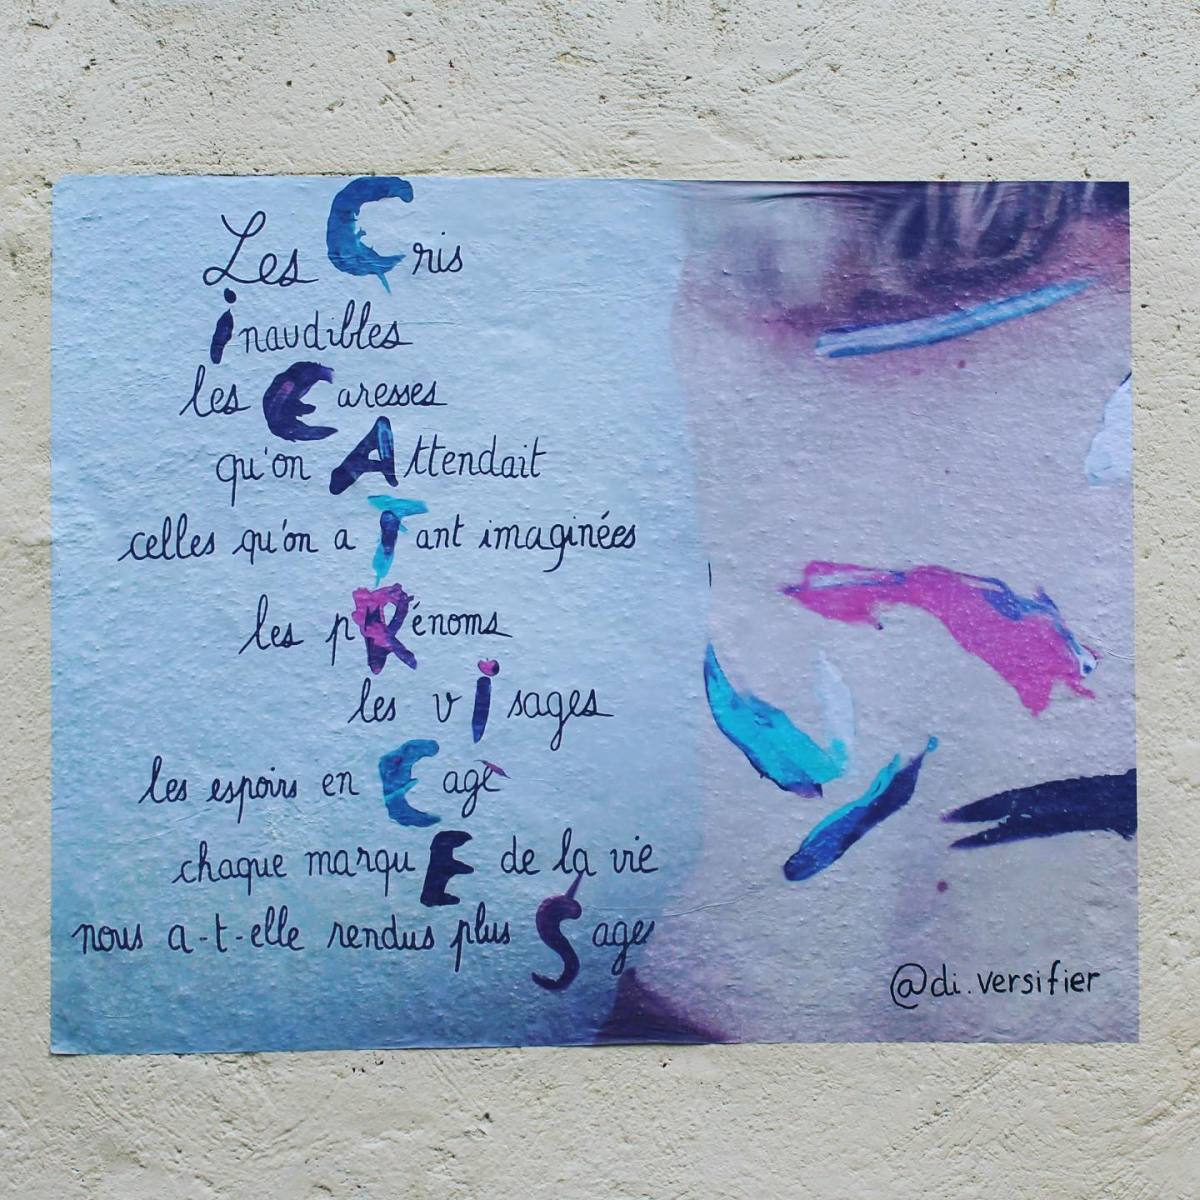 Les Cris
inaudibles
les Caresses
qu'on Attendait
celles qu'on a Tant imaginées
les pRénoms
les visages
les espoirs en Cage
chaque marquE de la vie
nous a-t-elle rendus plus Sages
@di.versifier